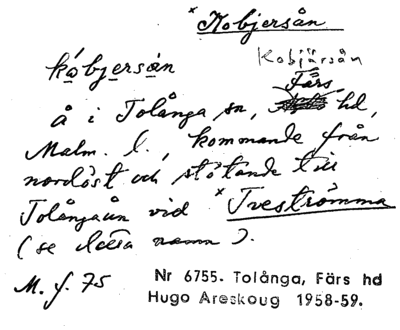 × Kobjersån
Kobjärsån
kóbjersån
Färs
å i Tolånga sn, hd,
Malm. l., kommande från
nordöst och stötande till
Tolångaån vid × Tveströmma
(se detta namn).
M. f. 75
Nr 6755. Tolånga, Färs hd
Hugo Areskoug 1958-59.